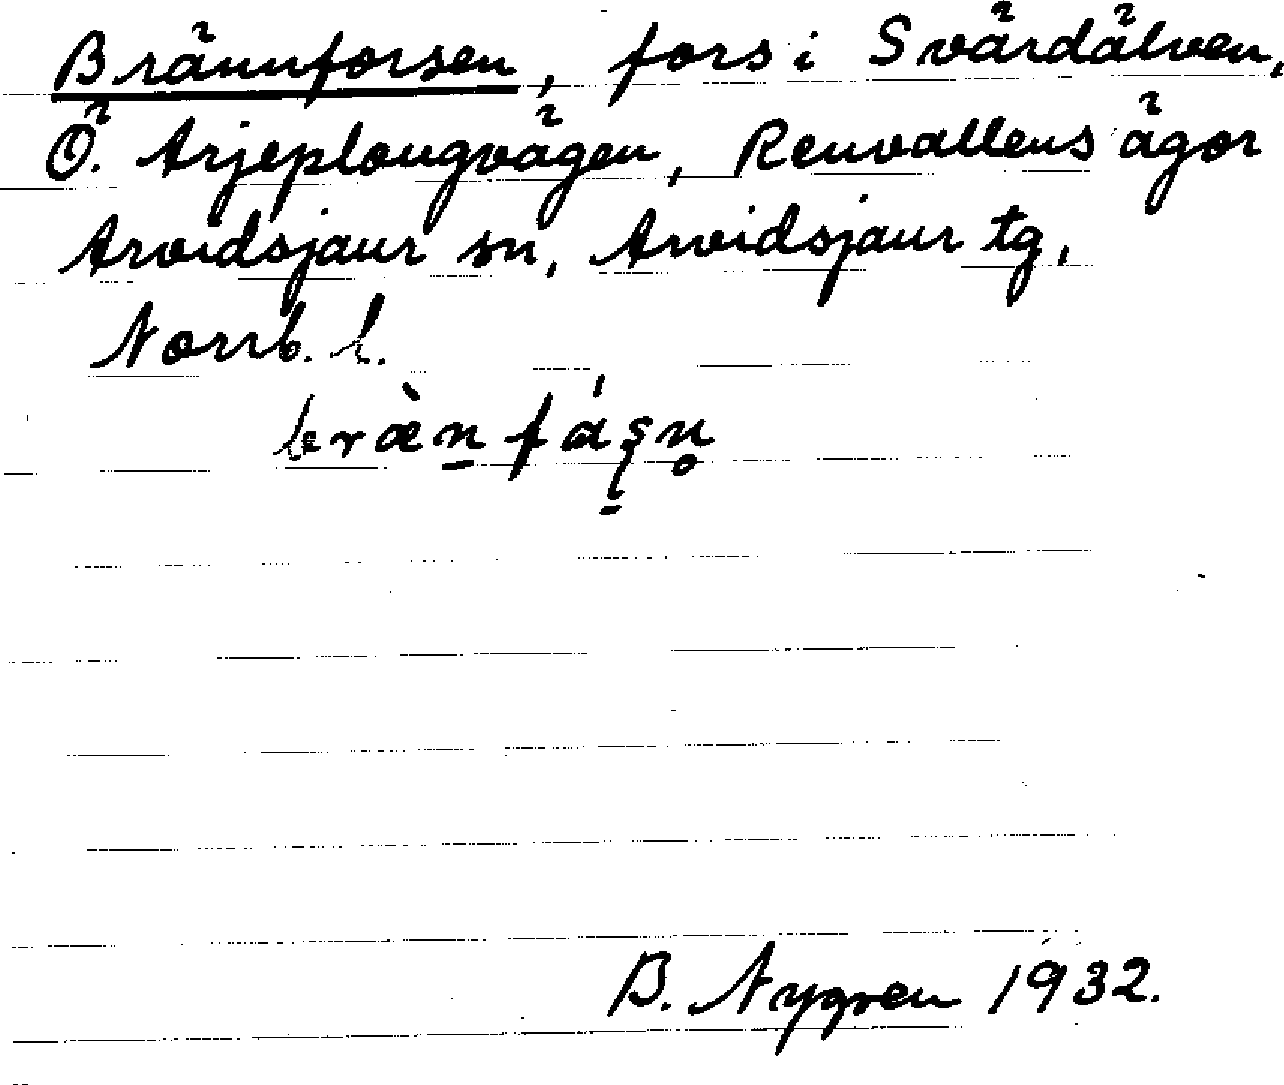 Brännforsen, fors i Svärdälven,
Ö. Arjeplougvägen, Renvallens ägor
Arvidsjaur sn, Arvidsjaur tg,
Norrb. l.
B. Nygren 1932.